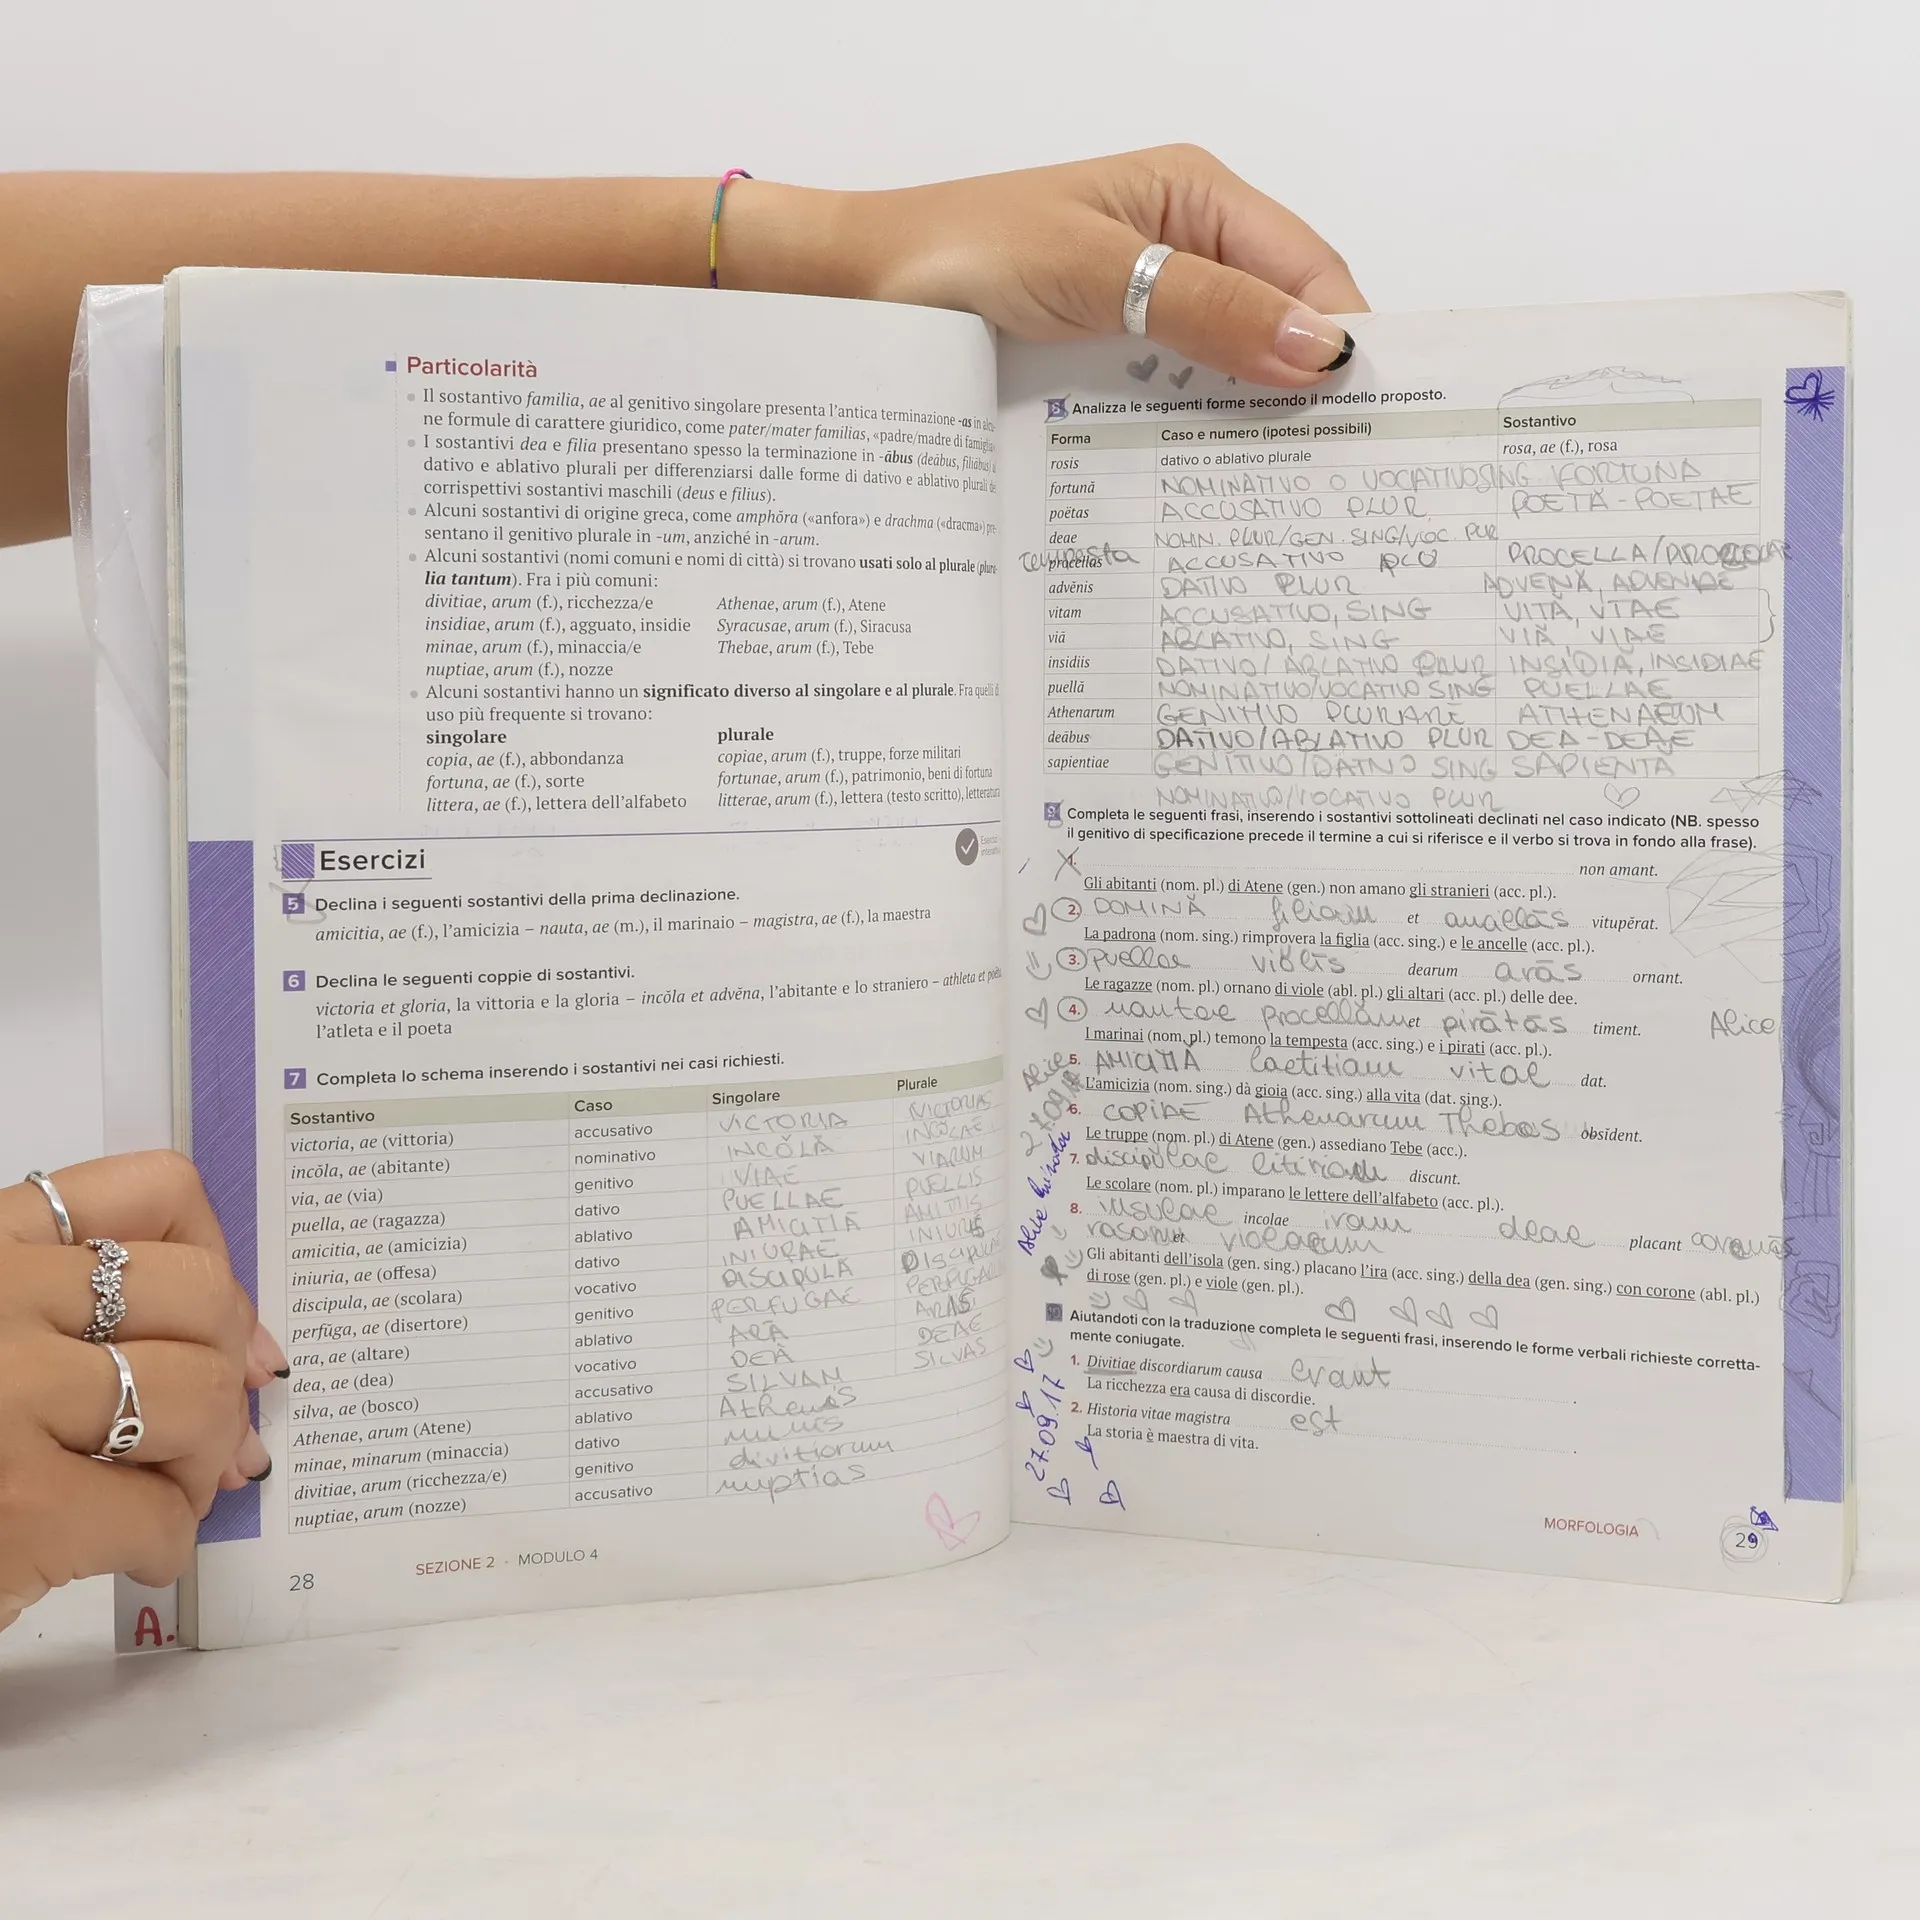 Particolarità
Il sostantivo familia, ae al genitivo singolare presenta l'antica terminazione -as in
ne formule di carattere giuridico, come pater/mater familias, «padre/madre di famiglia»
I sostantivi dea e filia presentano spesso la terminazione in -ābus (deābus, filiābus)
dativo e ablativo plurali per differenziarsi dalle forme di dativo e ablativo plurali
corrispettivi sostantivi maschili (deus e filius).
Alcuni sostantivi di origine greca, come amphŏra («anfora») e drachma («dracma») pre-
sentano il genitivo plurale in -um, anziché in -arum.
Alcuni sostantivi (nomi comuni e nomi di città) si trovano usati solo al plurale (plura-
lia tantum). Fra i più comuni:
divitiae, arum (f.), ricchezza/e Athenae, arum (f.), Atene
insidiae, arum (f.), agguato, insidie Syracusae, arum (f.), Siracusa
minae, arum (f.), minaccia/e Thebae, arum (f.), Tebe
nuptiae, arum (f.), nozze
Alcuni sostantivi hanno un significato diverso al singolare e al plurale. Fra quelli di
uso più frequente si trovano:
singolare plurale
copia, ae (f.), abbondanza copiae, arum (f.), truppe, forze militari
fortuna, ae (f.), sorte fortunae, arum (f.), patrimonio, beni di fortuna
littera, ae (f.), lettera dell'alfabeto litterae, arum (f.), lettera (testo scritto), letteratura
Esercizi
5 Declina i seguenti sostantivi della prima declinazione.
amicitia, ae (f.), l'amicizia – nauta, ae (m.), il marinaio – magistra, ae (f.), la maestra
6 Declina le seguenti coppie di sostantivi.
victoria et gloria, la vittoria e la gloria – incŏla et advĕna, l'abitante e lo straniero – athleta et poëta
l'atleta e il poeta
7 Completa lo schema inserendo i sostantivi nei casi richiesti.
Sostantivo Caso Singolare Plurale
victoria, ae (vittoria) accusativo VICTORIA VICTORIAS
incŏla, ae (abitante) nominativo INCŎLĂ INCOLAE
via, ae (via) genitivo VIAE VIARUM
puella, ae (ragazza) dativo PUELLAE PUELLIS
amicitia, ae (amicizia) ablativo AMICITIĀ AMITIIS
iniuria, ae (offesa) dativo INIURAE INIURIS
discipula, ae (scolara) vocativo DISCIPULĂ
perfŭga, ae (disertore) genitivo PERFUGAE
ara, ae (altare) ablativo ARĀ ARAS
dea, ae (dea) vocativo DEĂ DEAE
silva, ae (bosco) accusativo SILVAM SILVAS
Athenae, arum (Atene) ablativo Athenās
minae, minarum (minaccia) dativo minis
divitiae, arum (ricchezza/e) genitivo divitiarum
nuptiae, arum (nozze) accusativo nuptias
28 SEZIONE 2 · MODULO 4
A.
8 Analizza le seguenti forme secondo il modello proposto.
Forma Caso e numero (ipotesi possibili) Sostantivo
rosis dativo o ablativo plurale rosa, ae (f.), rosa
fortună NOMINATIVO O VOCATIVO SING FORTUNA
poëtas ACCUSATIVO PLUR POETĂ - POETAE
deae NOMIN. PLUR/GEN. SING/VOC. PUR
Tempesta
procellas ACCUSATIVO PLU
advĕnis DATIVO PLUR ADVENĂ, ADVENAE
vitam ACCUSATIVO, SING VITĂ, VITAE
viā ABLATIVO, SING VIĂ VIAE
insidiis DATIVO/ABLATIVO PLUR INSIDIĂ, INSIDIAE
puellă NOMINATIVO/VOCATIVO SING PUELLAE
Athenarum GENITIVO PLURARE ATHENAEUM
deābus DATIVO/ABLATIVO PLUR DEA-DEAE
sapientiae GENITIVO/DATIVO SING SAPIENTA
NOMINATIVO/VOCATIVO PLUR
9 Completa le seguenti frasi, inserendo i sostantivi sottolineati declinati nel caso indicato (NB. spesso
il genitivo di specificazione precede il termine a cui si riferisce e il verbo si trova in fondo alla frase).
1. non amant.
Gli abitanti (nom. pl.) di Atene (gen.) non amano gli stranieri (acc. pl.).
2. DOMINĂ filiam et ancillās vitupĕrat.
La padrona (nom. sing.) rimprovera la figlia (acc. sing.) e le ancelle (acc. pl.).
3. puellae violīs dearum arās ornant.
Le ragazze (nom. pl.) ornano di viole (abl. pl.) gli altari (acc. pl.) delle dee.
4. nautae procellăm et pirātās timent. Alice
I marinai (nom. pl.) temono la tempesta (acc. sing.) e i pirati (acc. pl.).
5. AMICITIĂ laetitiam vitae dat.
L'amicizia (nom. sing.) dà gioia (acc. sing.) alla vita (dat. sing.).
6. COPIAE Athenarum Thebas obsĭdent.
Le truppe (nom. pl.) di Atene (gen.) assediano Tebe (acc.).
7. discipulae discunt.
Le scolare (nom. pl.) imparano le lettere dell'alfabeto (acc. pl.).
8. insulae incolae iram deae placant
et violarum
Gli abitanti dell'isola (gen. sing.) placano l'ira (acc. sing.) della dea (gen. sing.) con corone (abl. pl.)
di rose (gen. pl.) e viole (gen. pl.).
10 Aiutandoti con la traduzione completa le seguenti frasi, inserendo le forme verbali richieste corretta-
mente coniugate.
1. Divitiae discordiarum causa erant
La ricchezza era causa di discordie.
2. Historia vitae magistra est
La storia è maestra di vita.
Alice
27.09.17
MORFOLOGIA 29